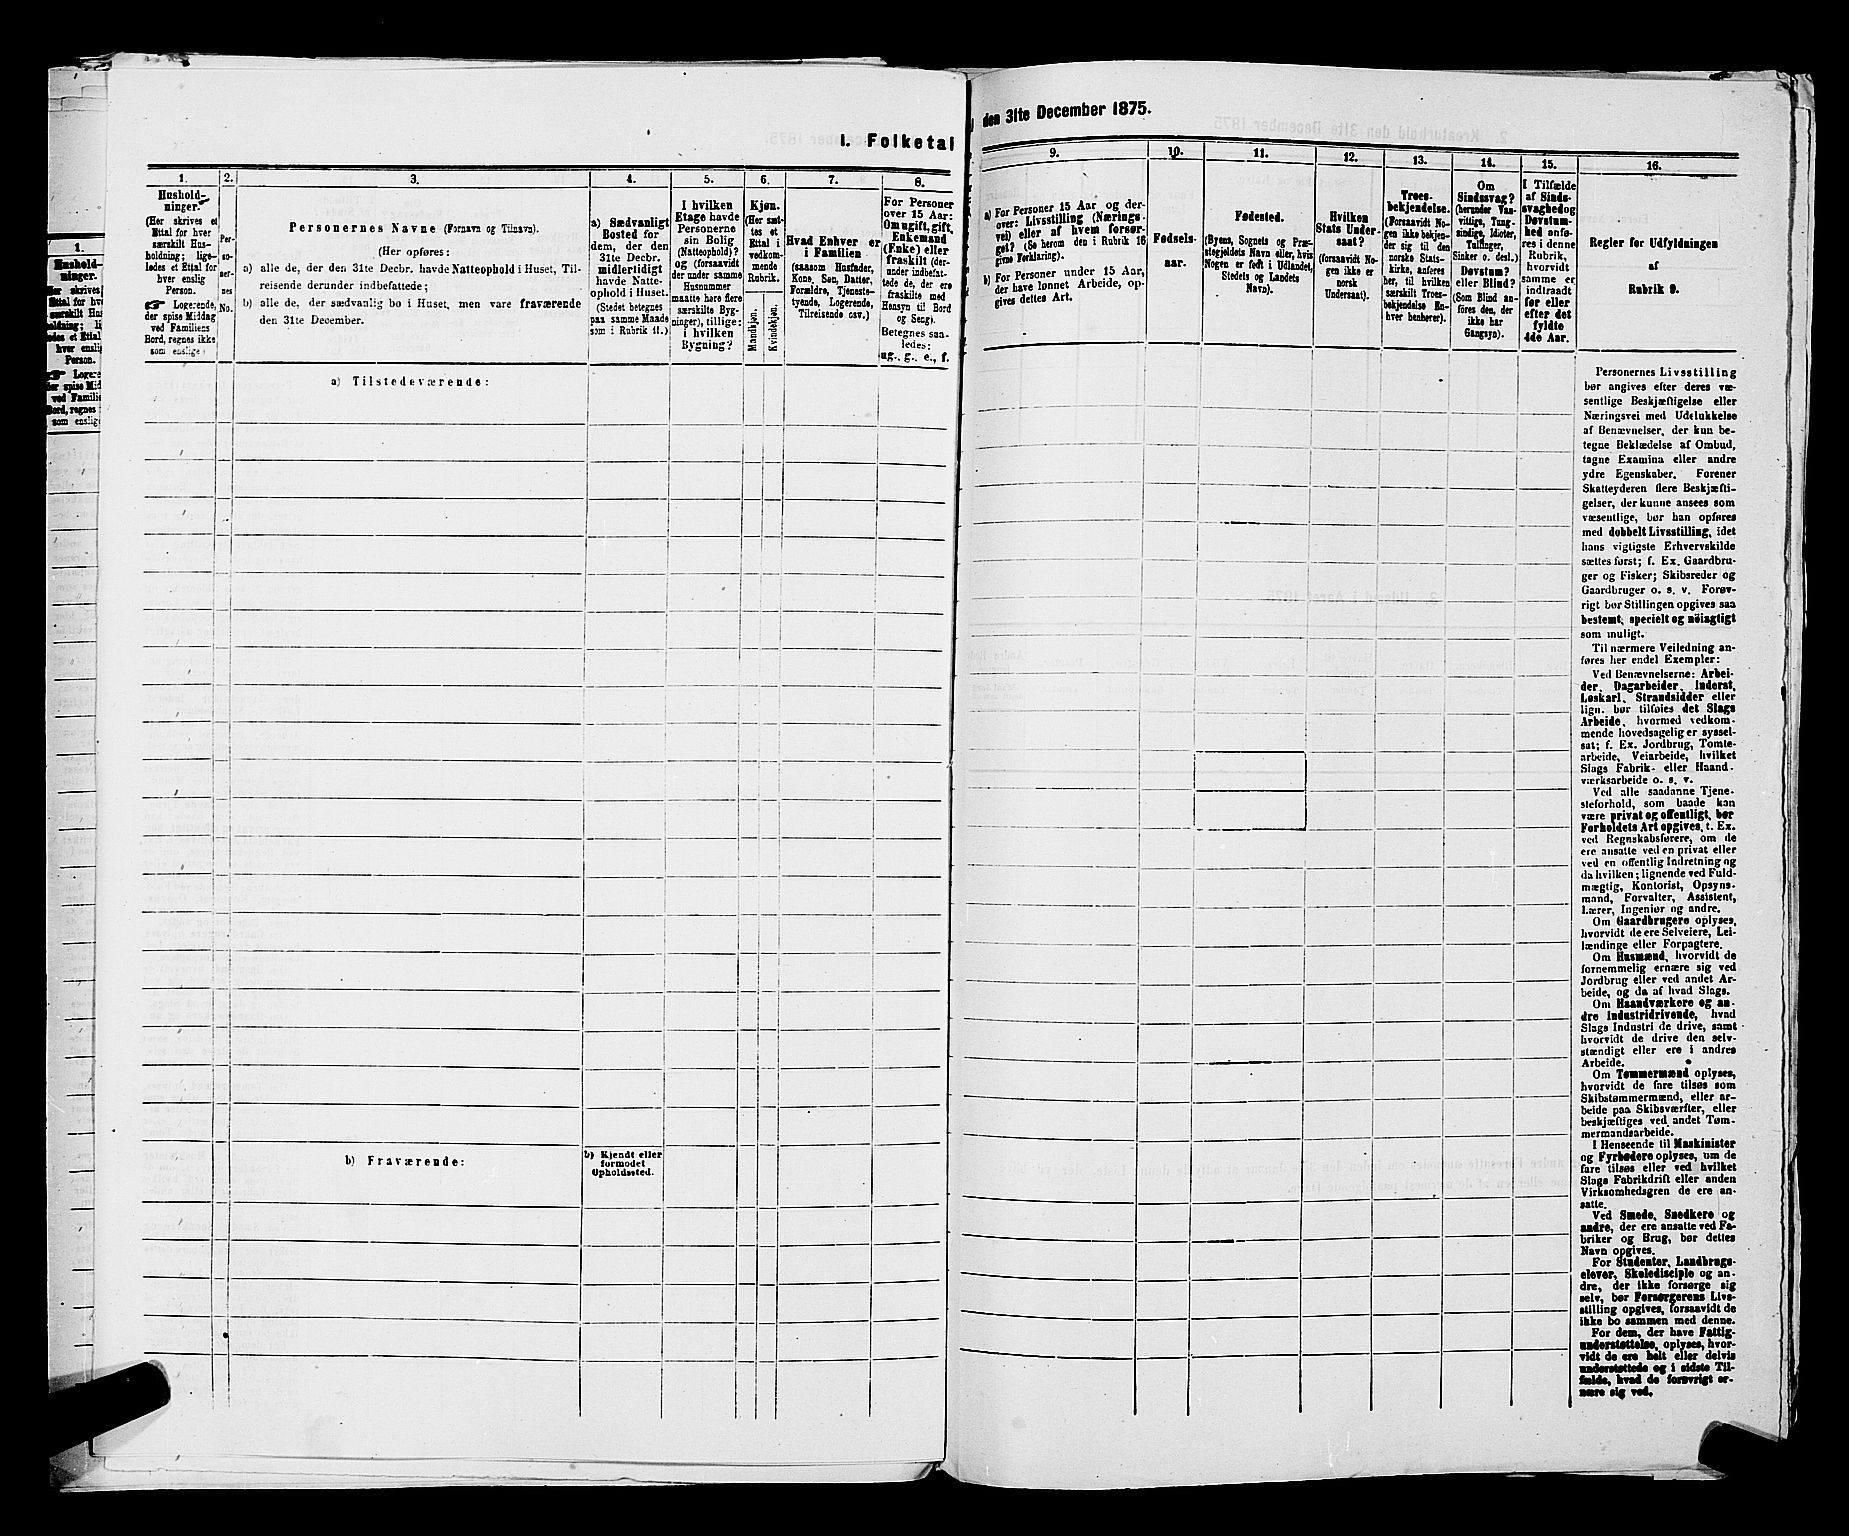 1. Folketal
den 31te December 1875.
1.
Hushold-
ninger.
(Her skrives et
Ettal for hver
særskilt Hus-
holdning; lige-
ledes et Ettal for
hver enslig
Person.
Logerende,
der spise Middag
ved Familiens
Bord, regnes ikke
som enslige
2.
Per-
so-
ner-
nes
No.
3.
Personernes Navne (Fornavn og Tilnavn).
(Her opføres:
a) alle de, der den 31te Decbr. havde Natteophold i Huset, Til-
reisende derunder indbefattede;
b) alle de, der sædvanlig bo i Huset, men vare fraværende
den 31te December.
4.
a) Sædvanligt
Bosted for
dem, der den
31te Decbr.
midlertidigt
havde Natte-
ophold i Huset.
(Stedet betegnes
paa samme Maade
som i Rubrik 11.)
5.
I hvilken
Etage havde
Personerne
sin Bolig
(Natteophold)?
og (forsaavidt
der under samme
Husnummer
maatte høre flere
særskilte Byg-
ninger), tillige:
i hvilken
Bygning?
6.
Kjøn.
(Her sæt-
tes et
Ettal i
vedkom-
mende
Rubrik.
Mandkjøn.
Kvindekjøn.
7.
Hvad Enhver er
i Familien
(saasom Husfader,
Kone, Søn, Datter,
Forældre, Tjeneste-
tyende, Logerende,
Tilreisende osv.)
8.
For Personer
over 15 Aar:
Om ugift, gift,
Enkemand
(Enke) eller
fraskilt (der-
under indbefat-
tede de, der ere
fraskilte med
Hensyn til Bord
og Seng).
Betegnes saa-
ledes:
ug., g., e., f.
a) Tilstedeværende:
b) Fraværende:
b) Kjendt eller
formodet
Opholdssted.
9.
a) For Personer 15 Aar og der-
over: Livsstilling (Nærings-
vei) eller af hvem forsør-
get? (Se herom den i Rubrik 16
givne Forklaring).
b) For Personer under 15 Aar,
der have lønnet Arbeide, op-
gives dettes Art.
10.
Fødsels-
aar.
11.
Fødested.
(Byens, Sognets og Præ-
stegjeldets Navn eller, hvis
Nogen er født i Udlandet,
Stedets og Landets
Navn).
12.
Hvilken
Stats Under-
saat?
(forsaavidt No-
gen ikke er
norsk
Undersaat).
13.
Troes-
bekjendelse.
(Forsaavidt No-
gen ikke bekjen-
der sig til den
norske Stats-
kirke, anføres
her, til hvilken
særskilt Troes-
bekjendelse En-
hver henhører).
14.
Om
Sindssvag?
(herunder Van-
vittige, Tung-
sindige, Idioter,
Tullinger,
Sinker o. desl.)
Døvstum?
eller Blind?
(Som Blind an-
føres den, der
ikke har
Gangsyn).
15.
I Tilfælde
af Sinds-
svaghed og
Døvstum-
hed anfø-
res i denne
Rubrik,
hvorvidt
samme er
indtraadt
før eller
efter det
fyldte
4de Aar.
16.
Regler for Udfyldningen
af
Rubrik 9.
Personernes Livsstilling
bør angives efter deres væ-
sentlige Beskjæftigelse eller
Næringsvei med Udelukkelse
af Benævnelser, der kun be-
tegne Beklædelse af Ombud,
tagne Examina eller andre
ydre Egenskaber. Forener
Skatteyderen flere Beskjæfti-
gelser, der kunne ansees som
væsentlige, bør han opføres
med dobbelt Livsstilling, idet
hans vigtigste Erhvervskilde
sættes først; f. Ex. Gaardbru-
ger og Fisker; Skibsreder og
Gaardbruger o. s. v. Forøv-
rigt bør Stillingen opgives saa
bestemt, specielt og nöiagtigt
som muligt.
Til nærmere Veiledning an-
føres her endel Exempler:
Ved Benævnelserne: Arbei-
der, Dagarbeider, Inderst,
Løskarl, Strandsidder eller
lign. bør tilføies det Slags
Arbeide, hvormed vedkom-
mende hovedsagelig er syssel-
sat; f. Ex. Jordbrug, Tomte-
arbeide, Veiarbeide, hvilket
Slags Fabrik- eller Haand-
værksarbeide o. s. v.
Ved alle saadanne Tjene-
steforhold, som baade kan
være privat og offentligt, bør
Forholdets Art opgives, f. Ex.
ved Regnskabsførere, om de
ere ansatte ved en privat eller
ved en offentlig Indretning og
da hvilken; lignende ved Fuld-
mægtig, Kontorist, Opsyns-
mand, Forvalter, Assistent,
Lærer, Ingeniør og andre.
Om Gaardbrugere oplyses,
hvorvidt de ere Selveiere, Lei-
lændinge eller Forpagtere.
Om Husmænd, hvorvidt de
fornemmelig ernære sig ved
Jordbrug eller ved andet Ar-
beide, og da af hvad Slags.
Om Haandværkere og an-
dre Industridrivende, hvad
Slags Industri de drive, samt
hvorvidt de drive den selv-
stændigt eller ere i andres
Arbeide.
Om Tømmermænd oplyses,
hvorvidt de fare tilsøs som
Skibstømmermænd, eller ar-
beide paa Skibsværfter, eller
beskjæftiges ved andet Tøm-
mermandsarbeide.
I Henseende til Maskinister
og Fyrbødere oplyses, om de
fare tilsøs eller ved hvilket
Slags Fabrikdrift eller anden
Virksomhedsgren de ere an-
satte.
Ved Smede, Snedkere og
andre, der ere ansatte ved Fa-
briker og Brug, bør dettes
Navn opgives.
For Studenter, Landbrugs-
elever, Skoledisciple og an-
dre, der ikke forsørge sig
selv, bør Forsørgerens Livs-
stilling opgives, forsaavidt de
ikke bo sammen med denne.
For dem, der have Fattig-
understøttelse, oplyses, hvor-
vidt de ere helt eller delvis
understøttede og i sidste Til-
fælde, hvad de forøvrigt er-
nære sig ved.